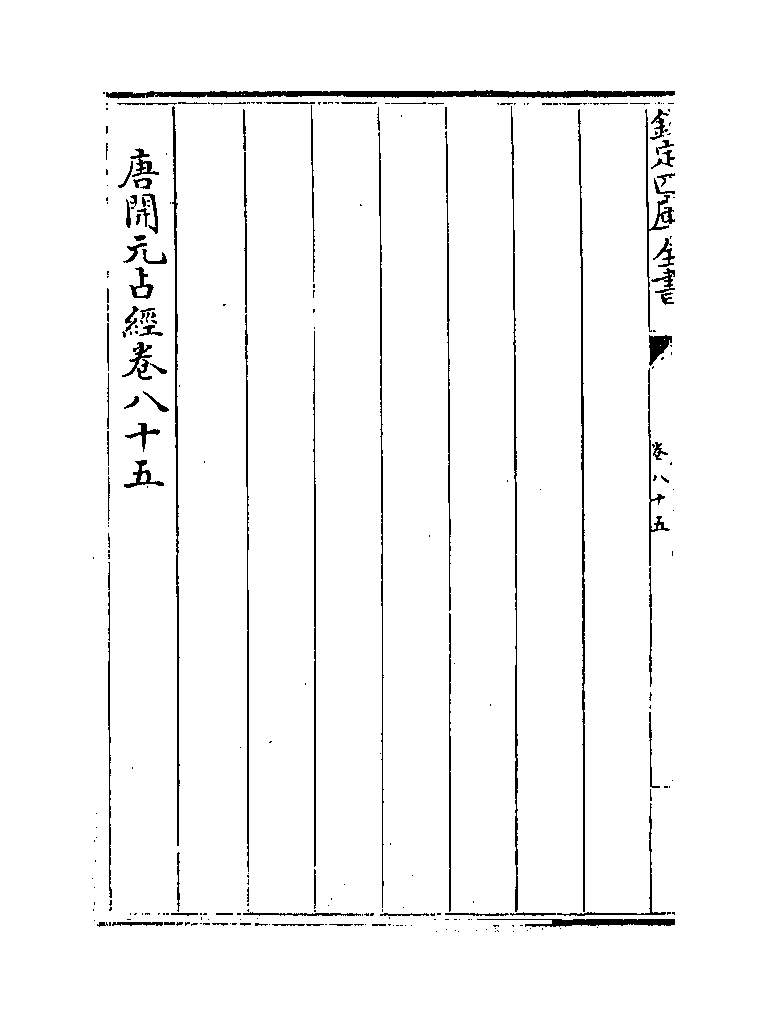 欽定四庫全書
卷八十五
唐開元占經卷八十五